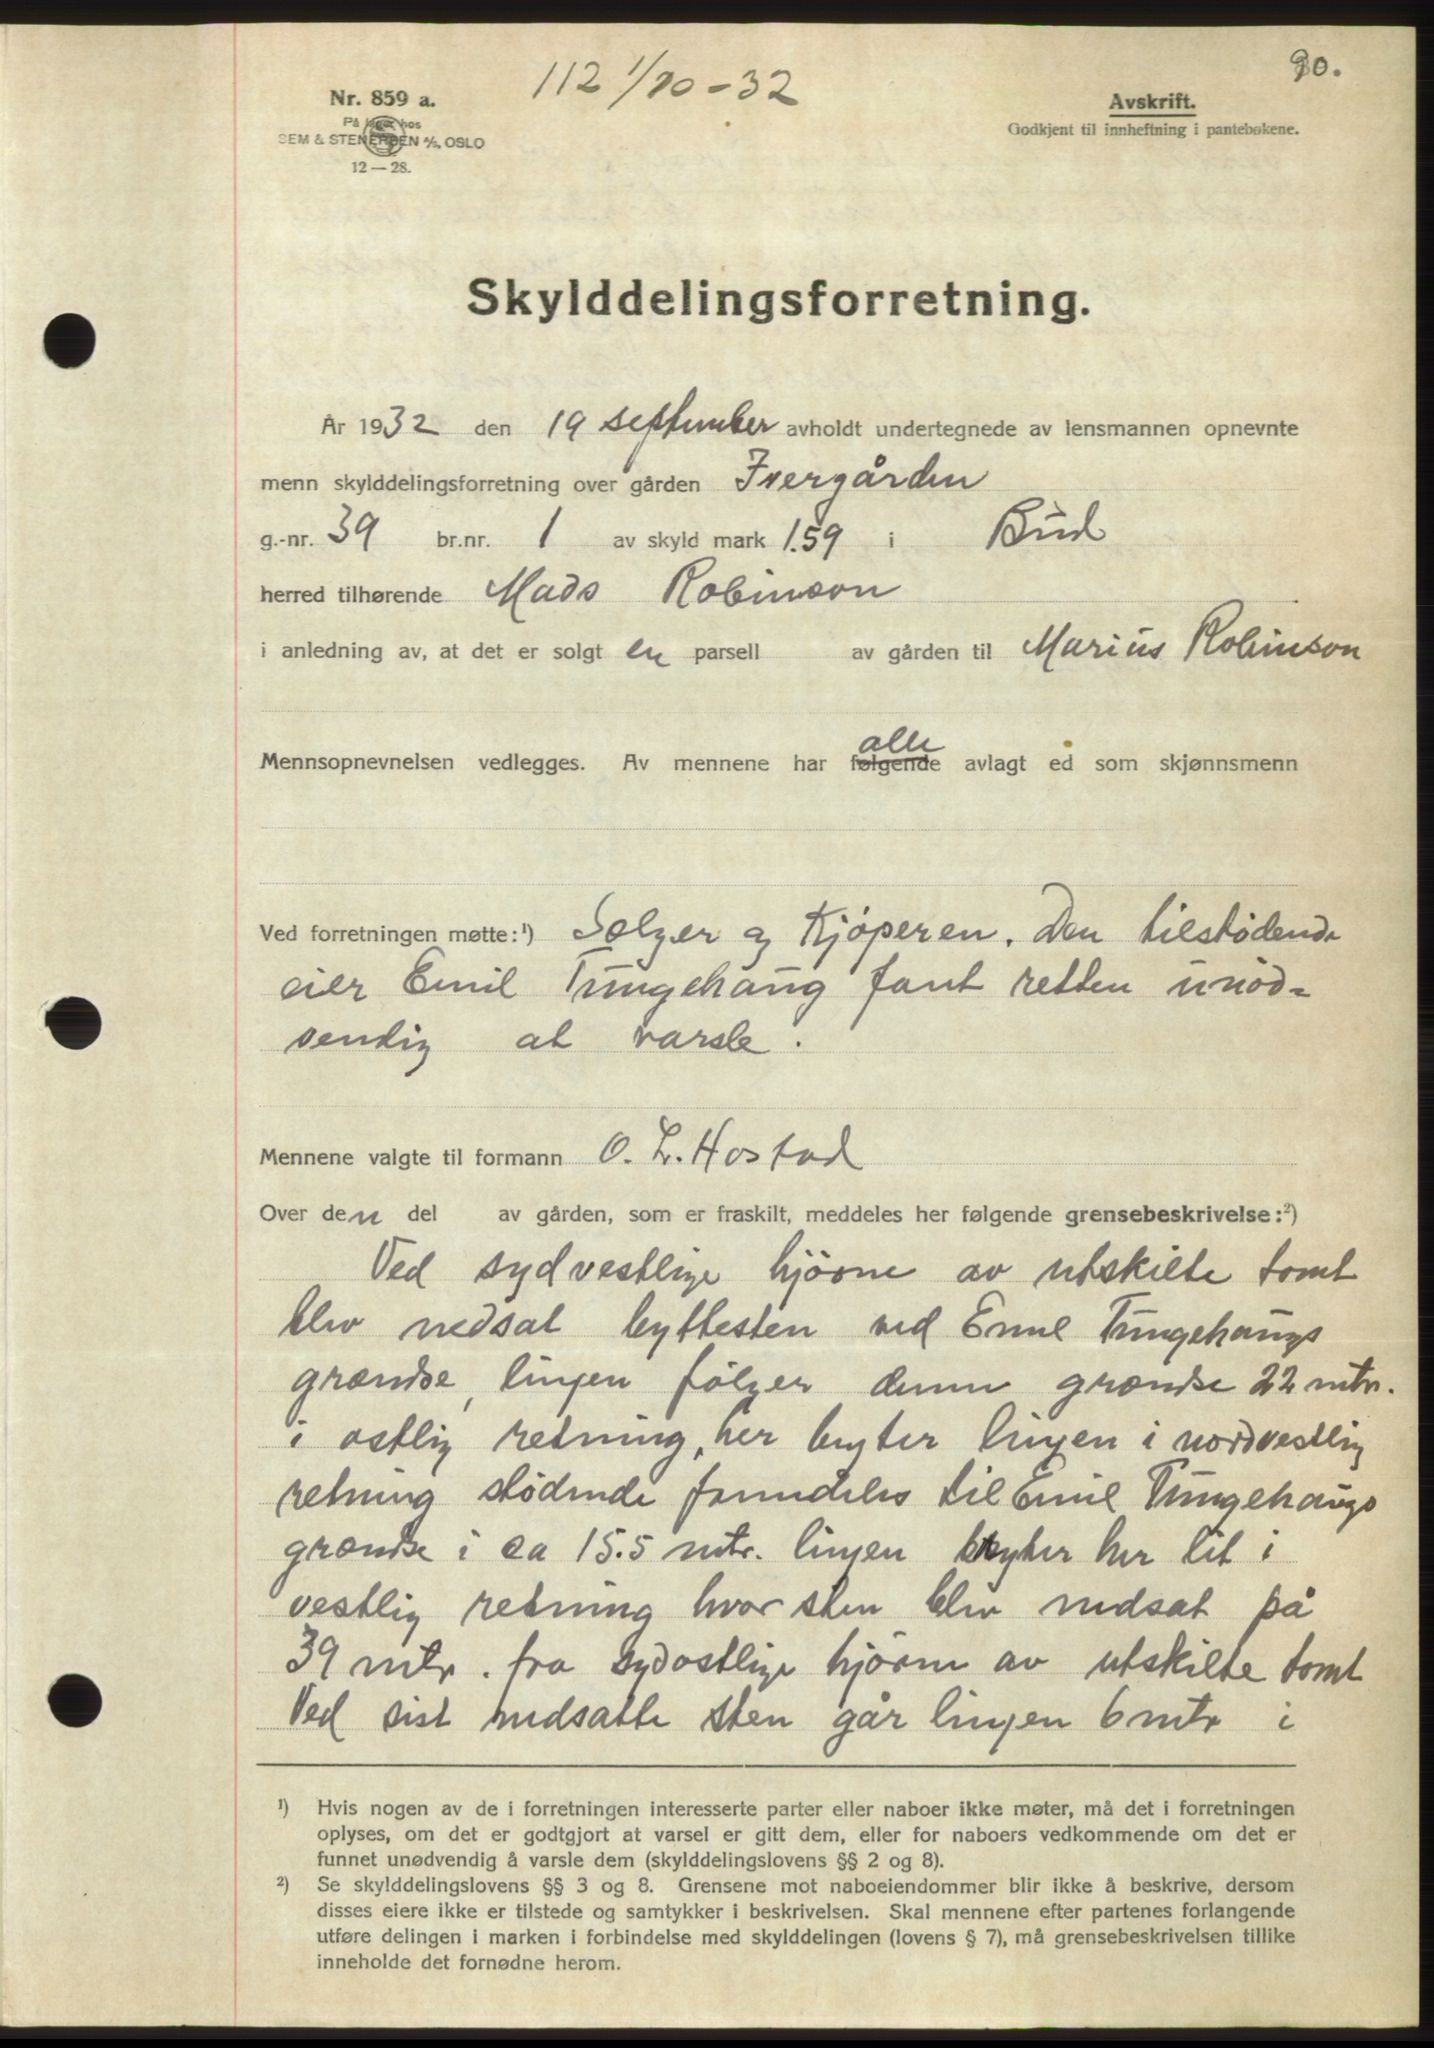 90.
112 1/10-32
Nr. 859 a.
På lager hos
SEM & STENERSEN A/S, OSLO
12 — 28.
Avskrift.
Godkjent til innheftning i pantebøkene.
Skylddelingsforretning.
År 1932 den 19 september avholdt undertegnede av lensmannen opnevnte
menn skylddelingsforretning over gården Ivergården
g.-nr. 39 br.nr. 1 av skyld mark 1.59 i Bud
herred tilhørende Mads Robinson
i anledning av, at det er solgt en parsell av gården til Marius Robinson
alle
Mennsopnevnelsen vedlegges. Av mennene har følgende avlagt ed som skjønnsmenn
Ved forretningen møtte:¹) Sælger og Kjøperen. Den tilstødende
eier Emil Tungehaug fant retten unød-
vendig at varsle.
Mennene valgte til formann O. L. Hostad
Over den del av gården, som er fraskilt, meddeles her følgende grensebeskrivelse:²)
Ved sydvestlige hjørne av utskilte tomt
blev nedsat byttesten ved Emil Tungehaugs
grændse, linjen følger denne grændse 22 mtr.
i østlig retning, her bryter linjen i nordvestlig
retning stødende fremdeles til Emil Tungehaugs
grændse i ca 15.5 mtr. linjen bryter her lit i
vestlig retning hvor sten blev nedsat på
39 mtr. fra sydøstlige hjørne av utskilte tomt
Ved sist nedsatte sten går linjen 6 mtr i
¹) Hvis nogen av de i forretningen interesserte parter eller naboer ikke møter, må det i forretningen
oplyses, om det er godtgjort at varsel er gitt dem, eller for naboers vedkommende om det er
funnet unødvendig å varsle dem (skylddelingslovens §§ 2 og 8).
²) Se skylddelingslovens §§ 3 og 8. Grensene mot naboeiendommer blir ikke å beskrive, dersom
disses eiere ikke er tilstede og samtykker i beskrivelsen. Skal mennene efter partenes forlangende
utføre delingen i marken i forbindelse med skylddelingen (lovens § 7), må grensebeskrivelsen tillike
inneholde det fornødne herom.